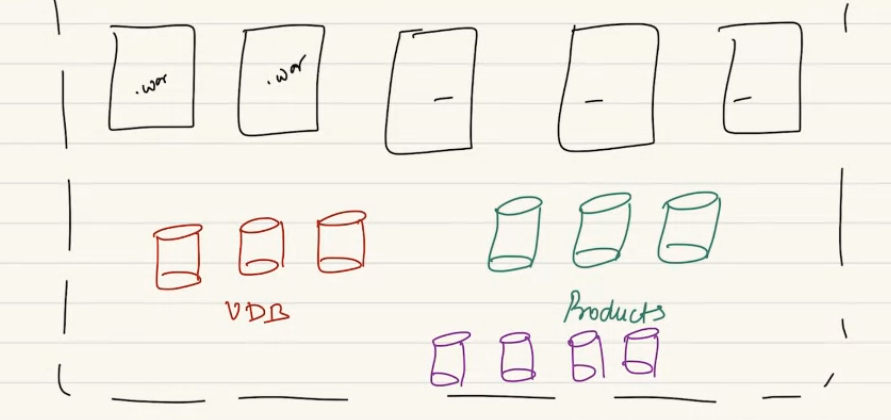 .war
.war
–
–
–
VDB
Products